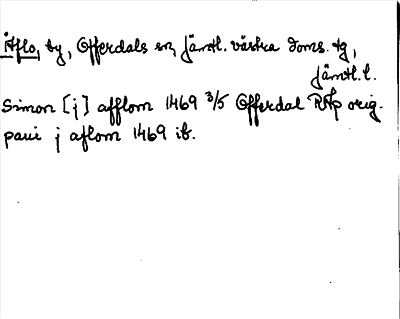 Åflo, by, Offerdals sn, Jämtl. västra doms. tg,
Jämtl. l.
Simon [j] afflom 1469 3/5 Offerdal RAp orig.
paui j aflom 1469 ib.